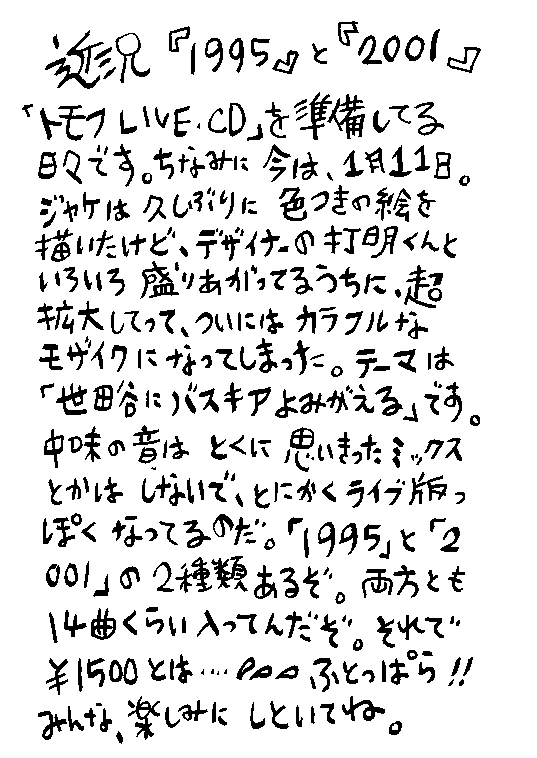 近況『1995』と『2001』
「トモフ LIVE・CD」を準備してる
日々です。ちなみに 今は、1月11日。
ジャケは 久しぶりに 色つきの絵を
描いたけど、デザイナーの打明くんと
いろいろ 盛りあがってるうちに、超
拡大してって、ついには カラフルな
モザイクに なってしまった。テーマは
「世田谷にバスキアよみがえる」です。
中味の音は とくに 思いきったミックス
とかは しないで、とにかくライブ版っ
ぽく なってるのだ。「1995」と「2
001」の 2種類あるぞ。両方とも
14曲くらい入ってんだぞ。それで
¥1500とは… ふとっぱら!!
みんな、楽しみに しといてね。